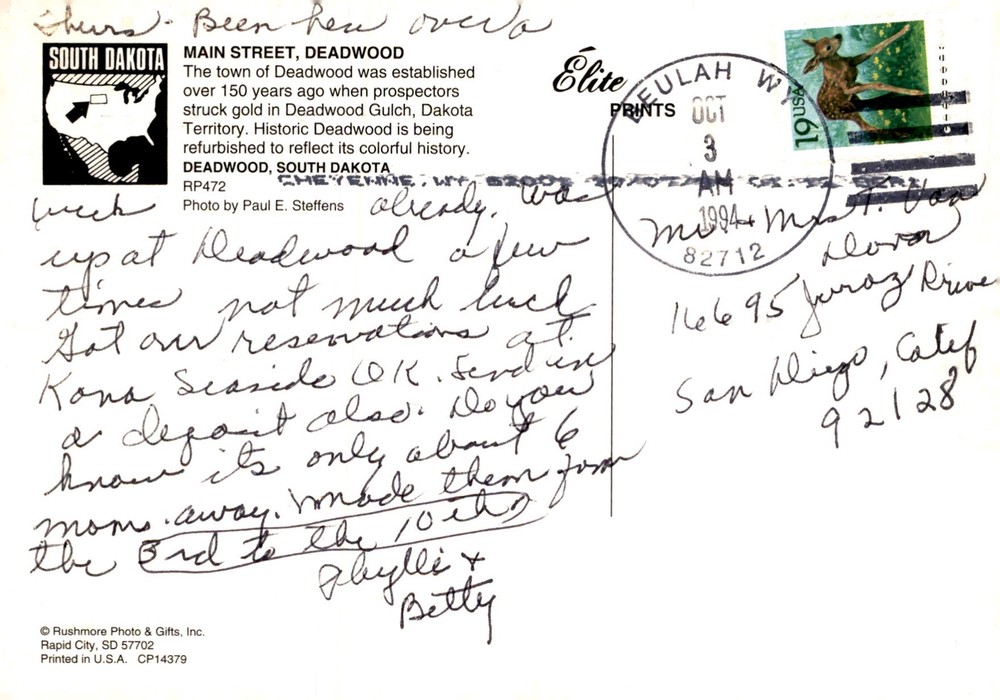 Thurs. Been here over a
SOUTH DAKOTA
MAIN STREET, DEADWOOD
The town of Deadwood was established
over 150 years ago when prospectors
struck gold in Deadwood Gulch, Dakota
Territory. Historic Deadwood is being
refurbished to reflect its colorful history.
DEADWOOD, SOUTH DAKOTA
RP472
Photo by Paul E. Steffens
week already. Was
up at Deadwood a few
times not much luck
Got our reservations at
Kona Seaside OK. Send in
a deposit also. Do you
know its only about 6
mons. away. Made them from
the 3rd to the 10th
Phyllis +
Betty
© Rushmore Photo & Gifts, Inc.
Rapid City, SD 57702
Printed in U.S.A. CP14379
Élite
PRINTS
BEULAH WY
OCT
3
AM
1994
82712
19USA
CHEYENNE, WY
Mr + Mrs F. Van
Dorn
16695 Drive
San Diego, Calif
92128